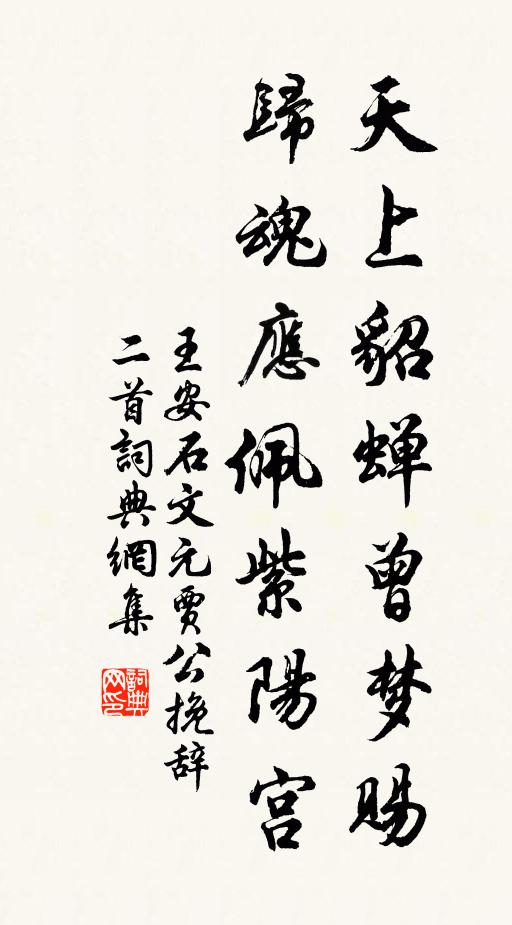 天上貂蝉曾梦賜
歸魂應佩紫陽宫
王安石文元賈公挽辞
二首詞典網集
詞典网印